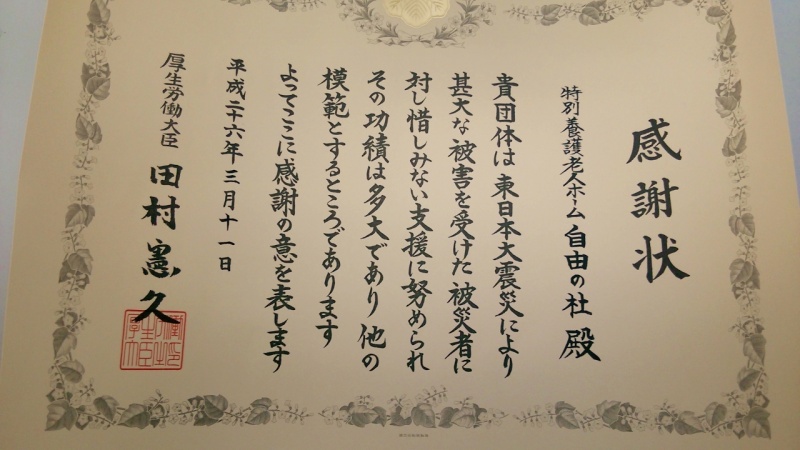 感謝状
特別養護老人ホーム 自由の杜 殿
貴団体は 東日本大震災により
甚大な被害を受けた 被災者に
対し惜しみない支援に努められ
その功績は多大であり 他の
模範とするところであります
よってここに感謝の意を表します
平成二十六年三月十一日
厚生労働大臣 田村憲久